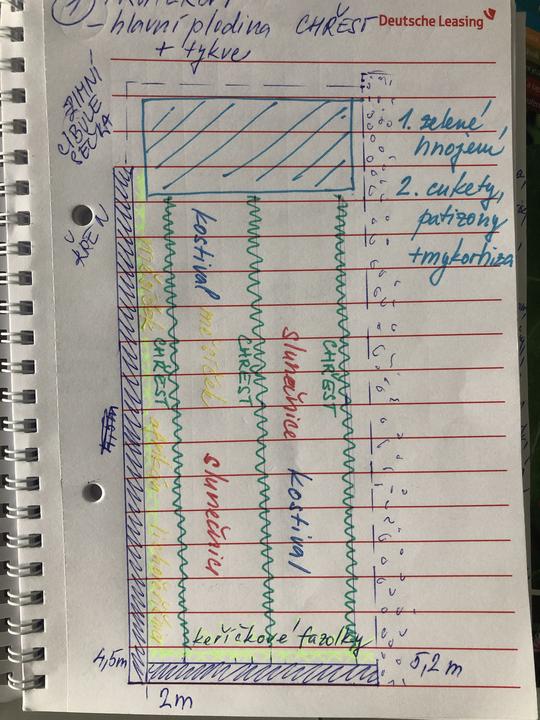 1
- hlavní plodina CHŘEST
+ tykve
Deutsche Leasing
ZIMNÍ
CIBULE
SEČKA
ŘÍJEN
1. zelené
hnojení
2. cukety,
patizony
+mykorhiza
kostival
měsíček
CHŘEST
CHŘEST
CHŘEST
slunečnice
slunečnici
kostival
keříčkové fazolky
4,5m
5,2 m
2m